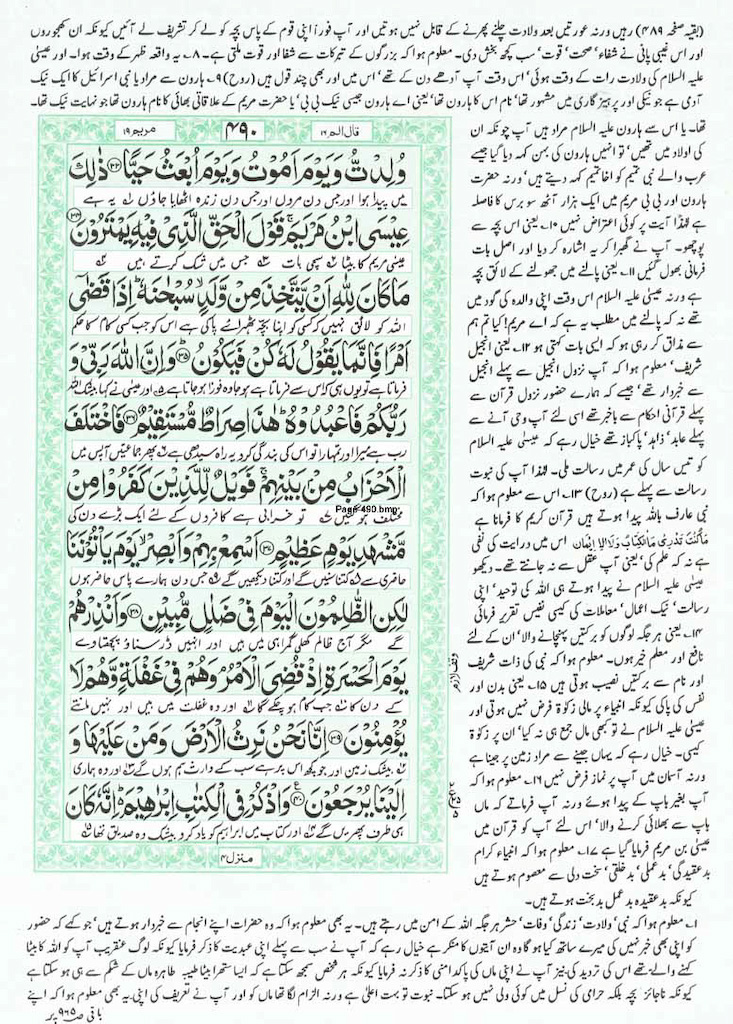 (بقیہ صفحہ ۴۸۹) رہیں ورنہ عورتیں بعد ولادت چلنے پھرنے کے قابل نہیں ہوتیں اور آپ فوراً اپنی قوم کے پاس بچہ کو لے کر تشریف لے آئیں کیونکہ ان کھجوروں
اور اس غیبی پانی نے شفاء' صحت' قوت' سب کچھ بخش دی۔ معلوم ہوا کہ بزرگوں کے تبرکات سے شفا اور قوت ملتی ہے۔ ۸۔ یہ واقعہ ظہر کے وقت ہوا۔ اور عیسیٰ
علیہ السلام کی ولادت رات کے وقت ہوئی' اس وقت آپ آدھے دن کے تھے' اس میں اور بھی چند قول ہیں (روح) ۹۔ ہارون سے مراد یا نبی اسرائیل کا ایک نیک
آدمی ہے جو نیکی اور پرہیزگاری میں مشہور تھا' نام اس کا ہارون تھا' یعنی اے ہارون جیسی نیک بی بی' یا حضرت مریم کے علاقائی بھائی کا نام ہارون تھا جو نہایت نیک
قال الم ۱۶
۴۹۰
مریم ۱۹
وُلِدْتُّ وَيَوْمَ اَمُوْتُ وَيَوْمَ اُبْعَثُ حَيًّا ۳۳ ذٰلِكَ
میں پیدا ہوا اور جس دن مروں اور جس دن زندہ اٹھایا جاؤں یہ ہے
عِيْسَى ابْنُ مَرْيَمَ قَوْلَ الْحَقِّ الَّذِيْ فِيْهِ يَمْتَرُوْنَ ۳۴
عیسٰی مریم کا بیٹا سچی بات جس میں شک کرتے ہیں
مَا كَانَ لِلّٰهِ اَنْ يَّتَّخِذَ مِنْ وَّلَدٍ سُبْحٰنَهٗ اِذَا قَضٰى
اللہ کو لائق نہیں کہ کسی کو اپنا بچہ ٹھہرائے پاکی ہے اس کو جب کسی کام کا حکم
اَمْرًا فَاِنَّمَا يَقُوْلُ لَهٗ كُنْ فَيَكُوْنُ ۳۵ وَاِنَّ اللّٰهَ رَبِّيْ وَ
فرماتا ہے تو یوں ہی کہ اس سے فرماتا ہے ہو جا وہ فوراً ہو جاتا ہے اور عیسٰی نے کہا بیشک اللہ
رَبُّكُمْ فَاعْبُدُوْهُ هٰذَا صِرَاطٌ مُّسْتَقِيْمٌ ۳۶ فَاخْتَلَفَ
رب ہے میرا اور تمہارا تو اس کی بندگی کرو یہ راہ سیدھی ہے پھر جماعتیں آپس میں
الْاَحْزَابُ مِنْ بَيْنِهِمْ فَوَيْلٌ لِّلَّذِيْنَ كَفَرُوْا مِنْ
مختلف ہو گئیں تو خرابی ہے کافروں کے لئے ایک بڑے دن کی
Page 490.bmp
مَّشْهَدِ يَوْمٍ عَظِيْمٍ ۳۷ اَسْمِعْ بِهِمْ وَاَبْصِرْ يَوْمَ يَاْتُوْنَنَا
حاضری سے کتنا سنیں گے اور کتنا دیکھیں گے جس دن ہمارے پاس حاضر ہوں
لٰكِنِ الظّٰلِمُوْنَ الْيَوْمَ فِيْ ضَلٰلٍ مُّبِيْنٍ ۳۸ وَاَنْذِرْهُمْ
گے مگر آج ظالم کھلی گمراہی میں ہیں اور انہیں ڈر سناؤ پچھتاوے
يَوْمَ الْحَسْرَةِ اِذْ قُضِيَ الْاَمْرُ وَهُمْ فِيْ غَفْلَةٍ وَّهُمْ لَا
کے دن کا جب کام ہو چکے گا اور وہ غفلت میں ہیں اور نہیں مانتے
يُؤْمِنُوْنَ ۳۹ اِنَّا نَحْنُ نَرِثُ الْاَرْضَ وَمَنْ عَلَيْهَا وَ
بیشک زمین اور جو کچھ اس پر ہے سب کے وارث ہم ہوں گے اور وہ ہماری
اِلَيْنَا يُرْجَعُوْنَ ۴۰ وَاذْكُرْ فِي الْكِتٰبِ اِبْرٰهِيْمَ اِنَّهٗ كَانَ
ہی طرف پھریں گے اور کتاب میں ابراہیم کو یاد کرو بیشک وہ صدیق تھا
منزل ۴
وقف لازم
تھا۔ یا اس سے ہارون علیہ السلام مراد ہیں آپ چونکہ ان
کی اولاد میں تھیں' تو انہیں ہارون کی بہن کہہ دیا گیا جیسے
عرب والے نبی تمیم کو اخا تمیم کہہ دیتے ہیں' ورنہ حضرت
ہارون اور بی بی مریم میں ایک ہزار آٹھ سو برس کا فاصلہ
ہے لہٰذا آیت پر کوئی اعتراض نہیں ۱۰۔ یعنی اس بچہ سے
پوچھو۔ آپ نے گھبرا کر یہ اشارہ کر دیا اور اصل بات
فرمانی بھول گئیں ۱۱۔ یعنی پالنے میں جھولنے کے لائق بچہ
ہے ورنہ عیسیٰ علیہ السلام اس وقت اپنی والدہ کی گود میں
تھے نہ کہ پالنے میں مطلب یہ ہے کہ اے مریم! کیا تم ہم
سے مذاق کر رہی ہو کہ ایسی بات کہتی ہو ۱۲۔ یعنی انجیل
شریف' معلوم ہوا کہ آپ نزول انجیل سے پہلے انجیل
سے خبردار تھے' جیسے کہ ہمارے حضور نزول قرآن سے
پہلے قرآنی احکام سے باخبر تھے اسی لئے آپ وحی آنے سے
پہلے عابد' زاہد' پاکباز تھے خیال رہے کہ عیسیٰ علیہ السلام
کو تیس سال کی عمر میں رسالت ملی۔ لہٰذا آپ کی نبوت
رسالت سے پہلے ہے (روح) ۱۳۔ اس سے معلوم ہوا کہ
نبی عارف باللہ پیدا ہوتے ہیں قرآن کریم کا فرمانا ہے
مَاكُنْتَ تَدْرِيْ مَا الْكِتَابُ وَلَا الْاِيْمَان اس میں درایت کی نفی
ہے نہ کہ علم کی' یعنی آپ عقل سے نہ جانتے تھے۔ دیکھو
عیسیٰ علیہ السلام نے پیدا ہوتے ہی اللہ کی توحید' اپنی
رسالت' نیک اعمال' معاملات کی کیسی نفیس تقریر فرمائی
۱۴۔ یعنی ہر جگہ لوگوں کو برکتیں پہنچانے والا' ان کے لئے
نافع اور معلم خیر ہوں۔ معلوم ہوا کہ نبی کی ذات شریف
اور نام سے برکتیں نصیب ہوتی ہیں ۱۵۔ یعنی بدن اور
نفس کی پاکی کیونکہ انبیاء پر مالی زکوٰۃ فرض نہیں ہوتی اور
عیسیٰ علیہ السلام نے تو کبھی مال جمع ہی نہ کیا' ان پر زکوٰۃ
کیسی۔ خیال رہے کہ یہاں جینے سے مراد زمین پر جینا ہے
ورنہ آسمان میں آپ پر نماز فرض نہیں ۱۶۔ معلوم ہوا کہ
آپ بغیر باپ کے پیدا ہوئے ورنہ آپ فرماتے کہ ماں
باپ سے بھلائی کرنے والا' اس لئے آپ کو قرآن میں
عیسیٰ بن مریم فرمایا گیا ہے ۱۷۔ معلوم ہوا کہ انبیاء کرام
بدعقیدگی' بدعملی' بدخلقی' سخت دلی سے معصوم ہوتے ہیں
کیونکہ بدعقیدہ بدعمل بدبخت ہوتے ہیں۔
۱۔ معلوم ہوا کہ نبی' ولادت' زندگی' وفات' حشر ہر جگہ اللہ کے امن میں رہتے ہیں۔ یہ بھی معلوم ہوا کہ وہ حضرات اپنے انجام سے خبردار ہوتے ہیں' جو کہے کہ حضور
کو اپنی بھی خبر نہیں کی میرے ساتھ کیا ہو گا وہ ان آیتوں کا منکر ہے خیال رہے کہ آپ نے سب سے پہلے اپنی عبدیت کا ذکر فرمایا کیونکہ لوگ عنقریب آپ کو اللہ کا بیٹا
کہنے والے تھے اس کی تردید کی نیز آپ نے اپنی ماں کی پاکدامنی کا ذکر نہ فرمایا کیونکہ ہر شخص سمجھ سکتا ہے کہ ایسا ستھرا بیٹا طیبہ طاہرہ ماں کے شکم سے ہی ہو سکتا ہے
کیونکہ ناجائز بچہ بلکہ حرامی کی نسل میں کوئی ولی نہیں ہو سکتا۔ نبوت تو بہت اعلیٰ ہے ورنہ الزام لگا تھا ماں کو اور آپ نے تعریف کی اپنی یہ بھی معلوم ہوا کہ اپنے
باقی صـ ۹۶۵ پر